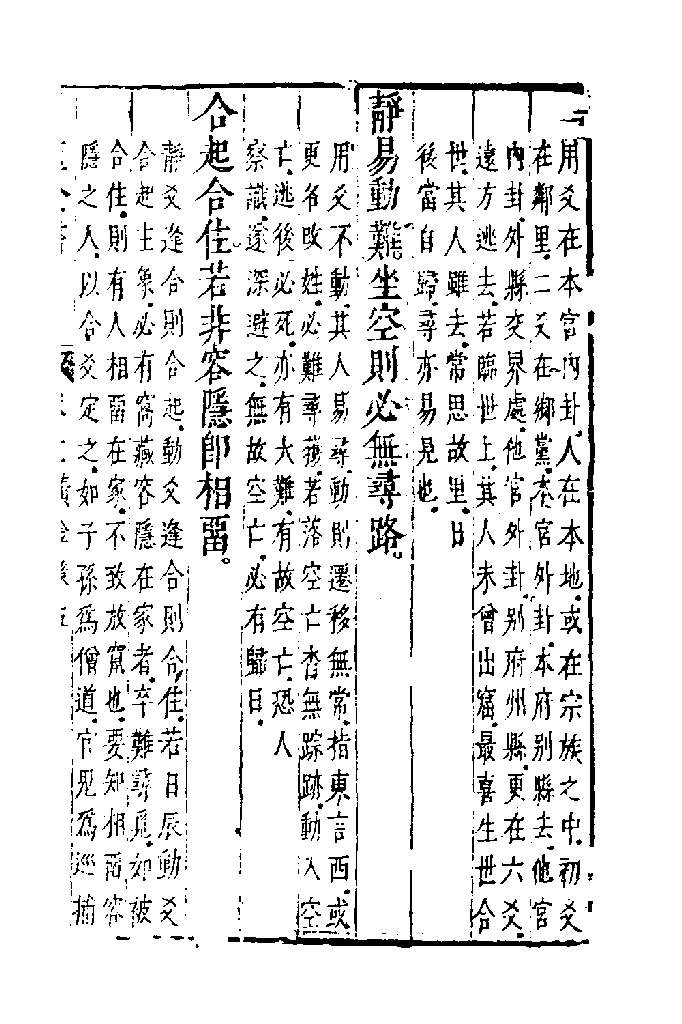 用爻在本宫内卦人在本地或在宗族之中初爻
在鄰里二爻在鄉黨本官外卦本府别縣去他官
内卦外縣交界處他官外卦别府州縣更在六爻
遠方逃去若臨世上其人未曾出窩最喜生世合
世其人雖去常思故里日
後當自歸尋亦易見也
靜易動難坐空則必無尋路
用爻不動其人易尋動則遷移無常指東言西或
更名改姓必難尋獲若落空亡杳無踪跡動入空
亡逃後必死亦有大難有故空亡恐人
察識遂深避之無故空亡必有歸日
合起合住若非容隱即相畱
靜爻逢合則合起動爻逢合則合住若日辰動爻
合起主象必有窩藏容隱在家者卒難尋覓如被
合住則有人相畱在家不致放竄也要知相畱容
隱之人以合爻定之如子孫爲僧道官鬼爲巡捕